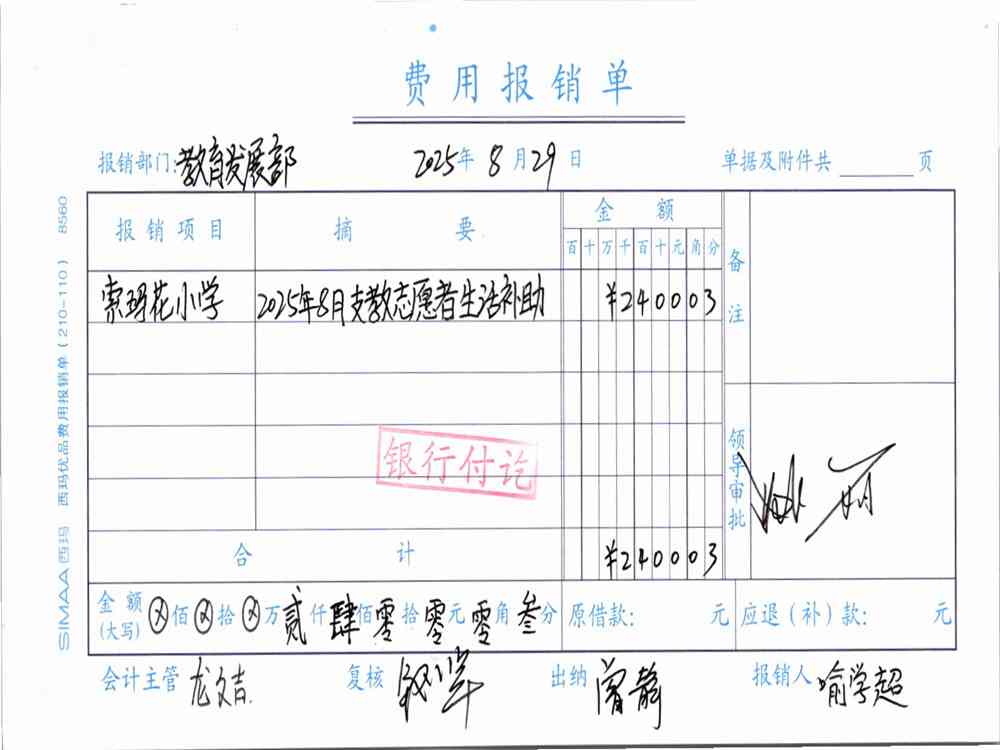 费用报销单
报销部门:教育发展部 2025年8月29日 单据及附件共 页
报销项目 摘要 金额 备注
百十万千百十元角分
索玛花小学 2025年8月支教志愿者生活补助 ¥240003
银行付讫
领导审批
合计 ¥240003
金额(大写) ⊗佰⊗拾⊗万贰仟肆佰零拾零元零角叁分 原借款: 元 应退(补)款: 元
会计主管 龙文吉 复核 出纳 曾静 报销人 喻学超
SIMAA西玛 西玛优品费用报销单(210-110) 8560